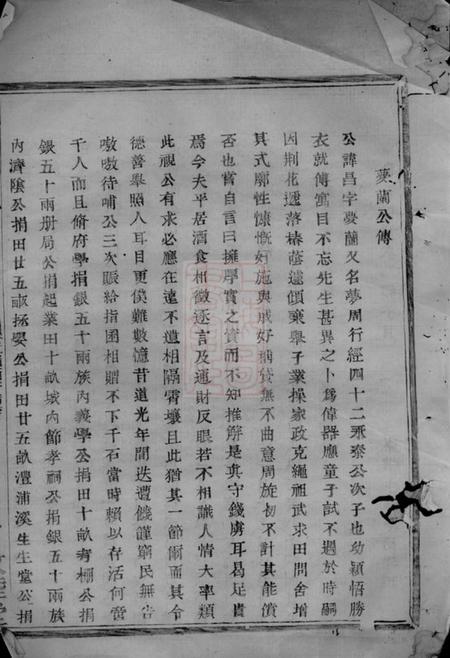 夢蘭公傳
公諱昌字夢蘭又名夢周行經四十二承泰公次子也幼穎悟勝
衣就傅寓目不忘先生甚異之卜爲偉器應童子試不遇於時嗣
因荆花遞落椿蔭遽傾棄舉子業操家政克繩祖武求田問舍增
其式廓性慷慨好施與戚好稱貸無不曲意周旋初不計其能償
否也嘗自言曰擁厚實之實而不知推解是真守錢虜耳曷足貴
焉今夫平居酒食相徵逐言及通財反眼若不相識人情大率類
此視公有求必應在遠不遺相隔霄壤且此猶其一節爾而其令
德善舉照人耳目更僕難數憶昔道光年間迭遭饑饉窮民無告
嗷嗷待哺公三次賑給指囷相贈不下千石當時賴以存活何啻
千人而且脩府學捐銀五十兩族內義學公捐田十畝育嬰公捐
銀五十兩册局公捐起業田十畝城內節孝祠公捐銀五十兩族
內濟陰公捐田廿五畝拯嬰公捐田廿五畝澧浦溪生生堂公捐